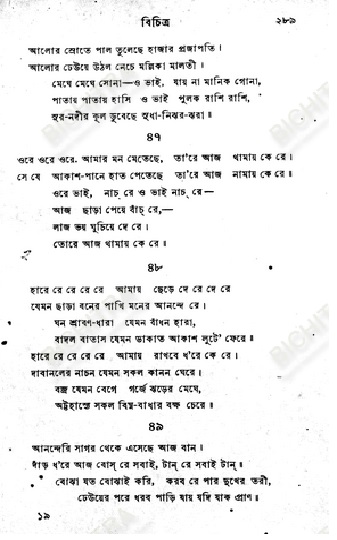 বিচিত্র ২৮৯
আলোর স্রোতে পাল তুলেছে হাজার প্রজাপতি।
আলোর ঢেউয়ে উঠল নেচে মল্লিকা মালতী।
মেঘে মেঘে সোনা—ও ভাই, যায় না মানিক গোনা,
পাতায় পাতায় হাসি ও ভাই পুলক রাশি রাশি,
সুর-নদীর কূল ডুবেছে সুধা-নিঝর-ঝরা॥
৪৭
ওরে ওরে ওরে, আমার মন মেতেছে, তা'রে আজ থামায় কে রে।
সে যে আকাশ-পানে হাত পেতেছে তা'রে আজ নামায় কে রে।
ওরে ভাই, নাচ্ রে ও ভাই নাচ্ রে—
আজ ছাড়া পেয়ে বাঁচ্ রে,—
লাজ ভয় ঘুচিয়ে দে রে।
তোরে আজ থামায় কে রে।
৪৮
হারে রে রে রে রে আমায় ছেড়ে দে রে দে রে
যেমন ছাড়া বনের পাখি মনের আনন্দে রে।
ঘন শ্রাবণ-ধারা যেমন বাঁধন হারা,
বাদল বাতাস যেমন ডাকাত আকাশ লুটে' ফেরে॥
হারে রে রে রে রে আমায় রাখবে ধ'রে কে রে।
দাবানলের নাচন যেমন সকল কানন ঘেরে।
বজ্র যেমন বেগে গর্জে ঝড়ের মেঘে,
অট্টহাস্যে সকল বিঘ্ন-বাধার বক্ষ চেরে॥
৪৯
আনন্দেরি সাগর থেকে এসেছে আজ বান।
দাঁড় ধ'রে আজ বোস্ রে সবাই, টান্ রে সবাই টান্।
বোঝা যত বোঝাই করি, করব রে পার দুখের তরী,
ঢেউয়ের পরে ধরব পাড়ি যায় যদি যাক্ প্রাণ॥
১৯